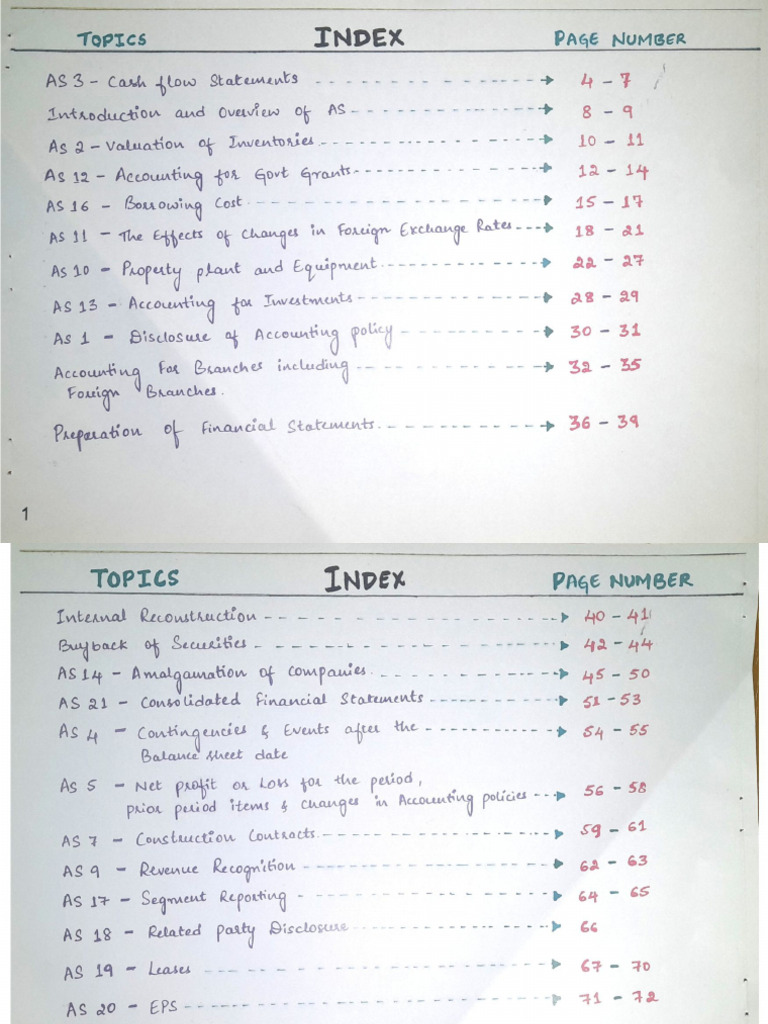 TOPICS INDEX PAGE NUMBER
AS 3 - Cash flow Statements 4 - 7
Introduction and Overview of AS 8 - 9
AS 2 - Valuation of Inventories 10 - 11
AS 12 - Accounting for Govt Grants 12 - 14
AS 16 - Borrowing Cost 15 - 17
AS 11 - The Effects of Changes in Foreign Exchange Rates 18 - 21
AS 10 - Property plant and Equipment 22 - 27
AS 13 - Accounting for Investments 28 - 29
AS 1 - Disclosure of Accounting policy 30 - 31
Accounting For Branches including 32 - 35
Foreign Branches.
Preparation of Financial Statements 36 - 39
1
TOPICS INDEX PAGE NUMBER
Internal Reconstruction 40 - 41
Buyback of Securities 42 - 44
AS 14 - Amalgamation of Companies 45 - 50
AS 21 - Consolidated Financial Statements 51 - 53
AS 4 - Contingencies & Events after the 54 - 55
Balance sheet date
AS 5 - Net profit or Loss for the period,
prior period items & changes in Accounting policies 56 - 58
AS 7 - Construction Contracts 59 - 61
AS 9 - Revenue Recognition 62 - 63
AS 17 - Segment Reporting 64 - 65
AS 18 - Related party Disclosure 66
AS 19 - Leases 67 - 70
AS 20 - EPS 71 - 72